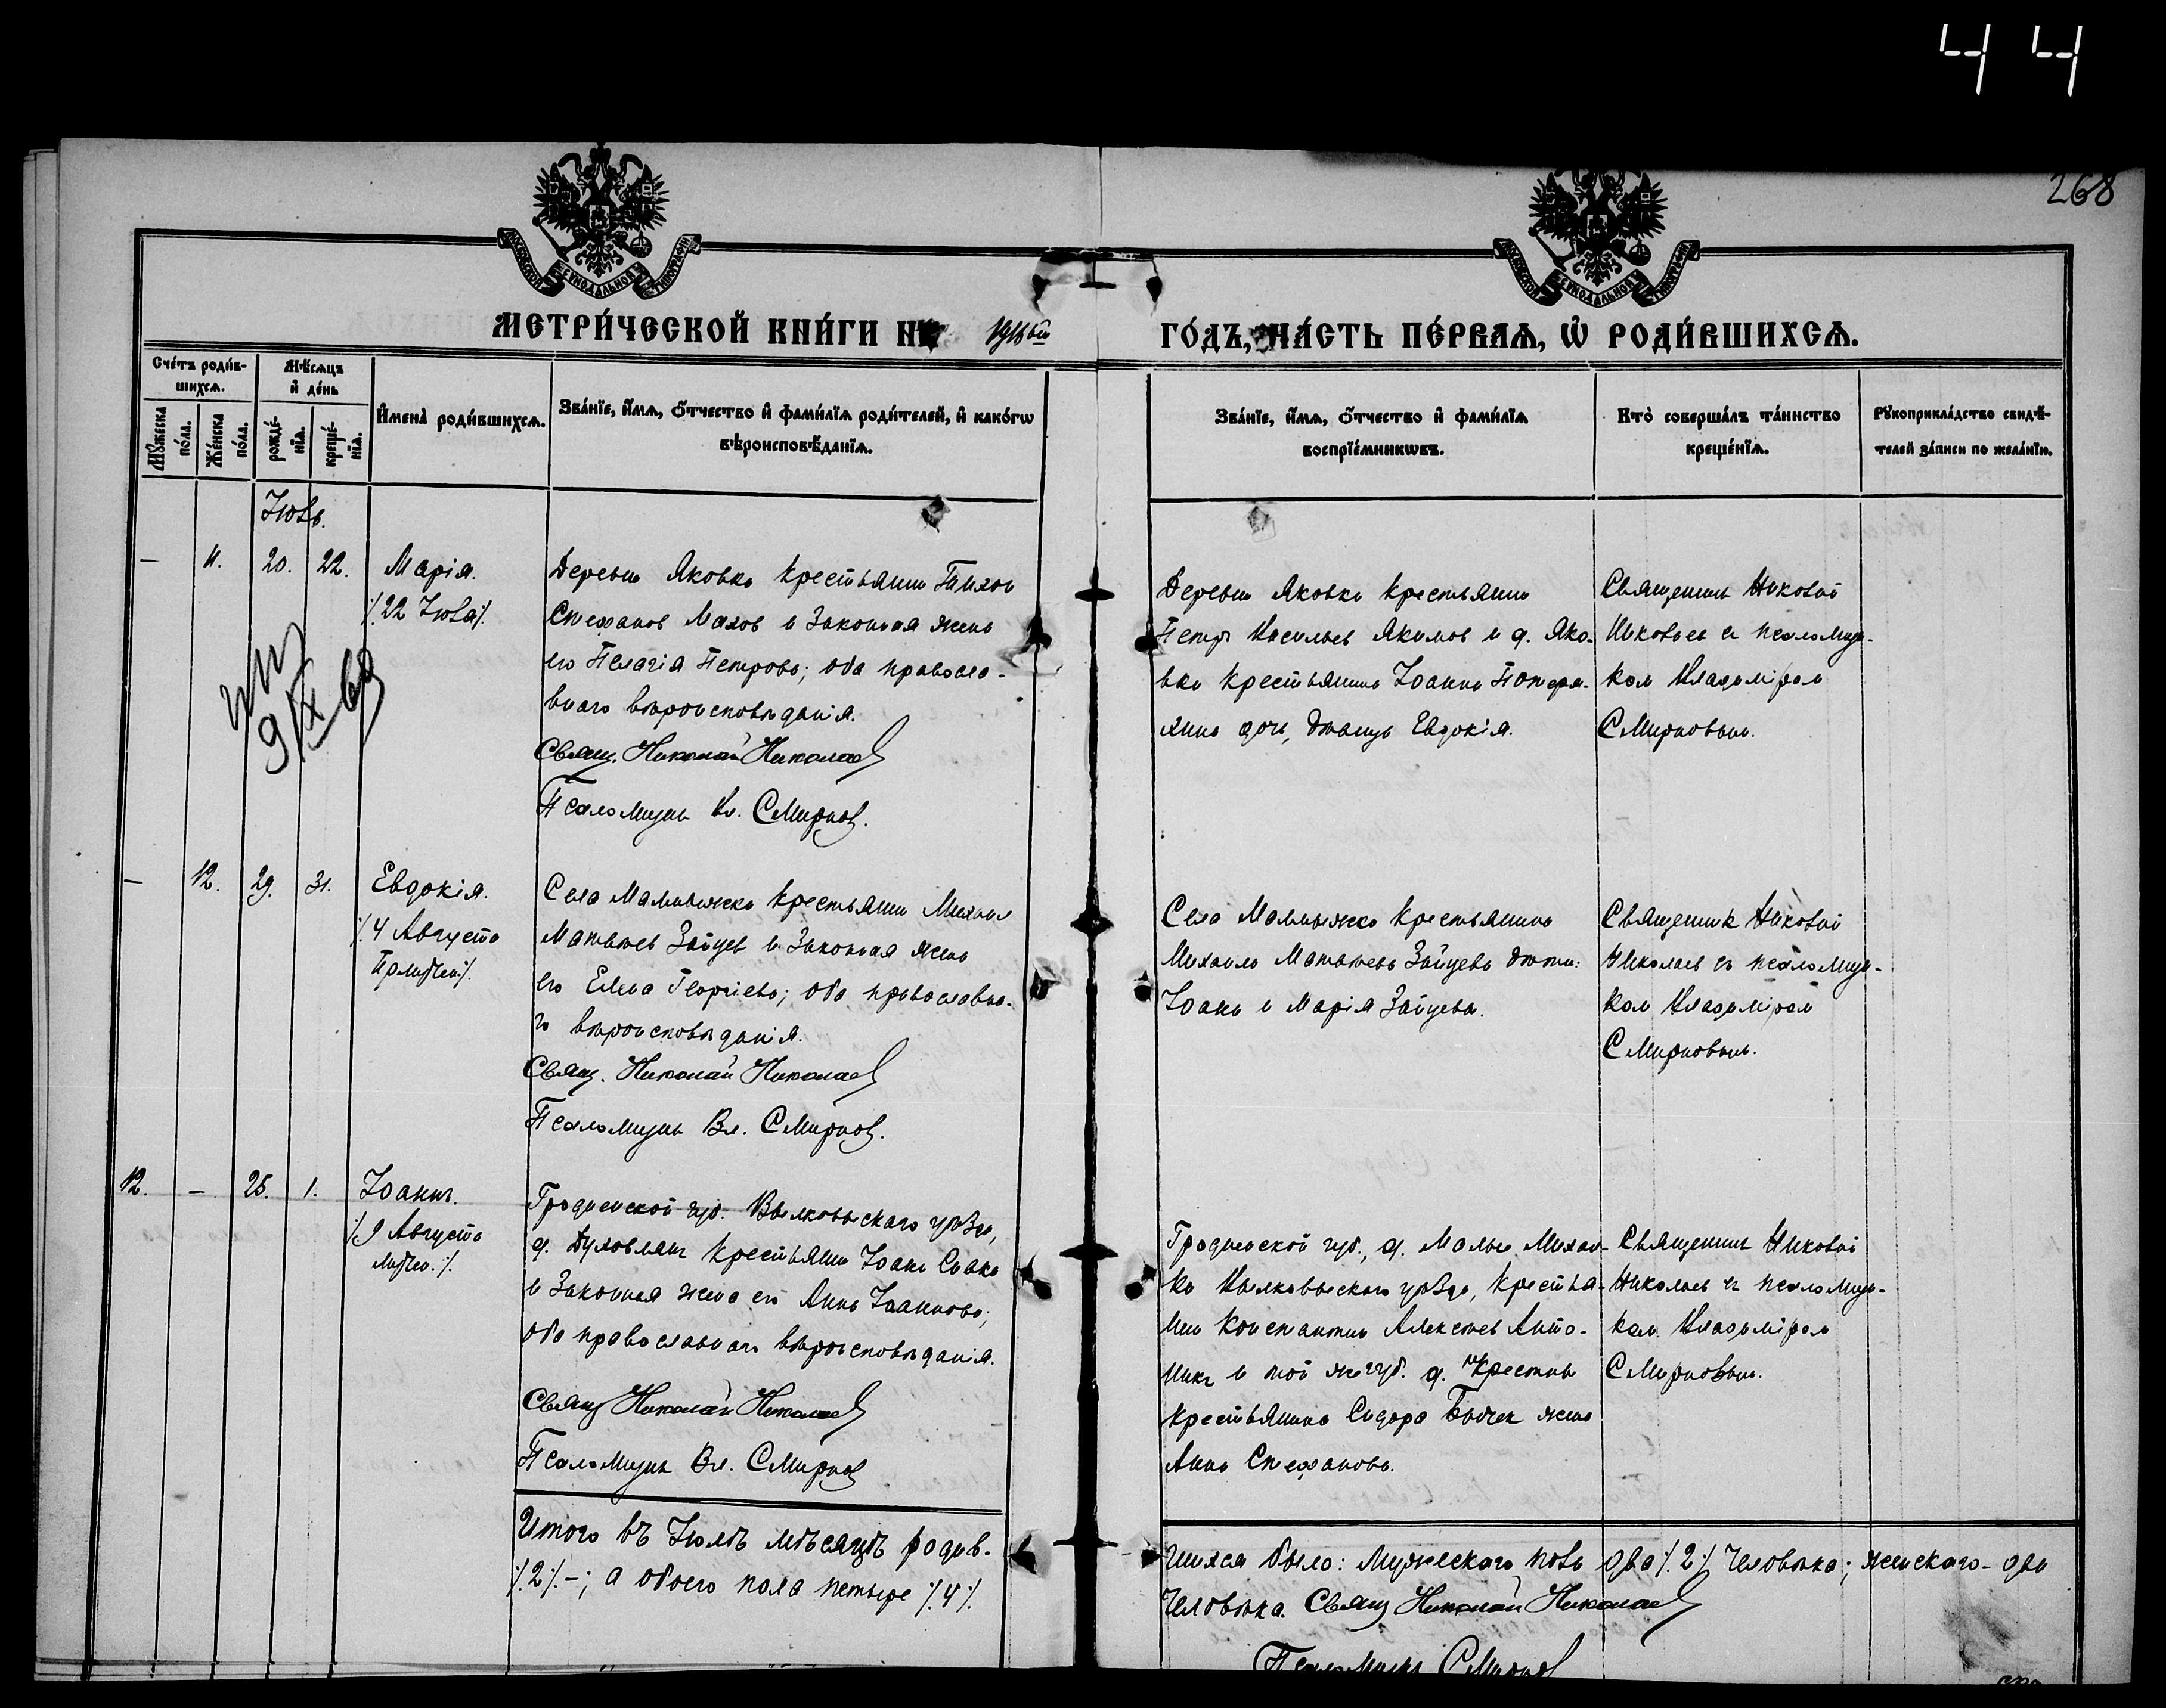 44
268
МОСКОВСКОЙ СѴНОДАЛЬНОЙ ТИПОГРАФІИ
МОСКОВСКОЙ СѴНОДАЛЬНОЙ ТИПОГРАФІИ
МЕТРИ́ЧЕСКОЙ КНИ́ГИ НА 1916ый ГО́ДЪ, ЧА́СТЬ ПЕ́РВАѦ, Ѡ РОДИ́ВШИХСѦ.
Сче́тъ роди́в-
шихсѧ.
Мꙋ́жеска
по́ла.
Же́нска
по́ла.
Мѣ́сѧцъ
и҆ де́нь
рожде́-
нїѧ.
креще́-
нїѧ.
И҆мена̀ роди́вшихсѧ.
Зва́нїе, и҆́мѧ, ѻ҆́тчество и҆ фами́лїѧ роди́телей, и҆ како́гѡ
вѣроисповѣ́данїѧ.
Зва́нїе, и҆́мѧ, ѻ҆́тчество и҆ фами́лїѧ
воспрїе́мникѡвъ.
Кто̀ соверша́лъ та́инство
креще́нїѧ.
Рꙋкоприкла́дство свидѣ́-
телей за́писи по жела́нїю.
Іюль.
— 11. 20. 22. Марія.
/.22 Іюля/.
9/IX 69
Деревни Яковки крестьянин Тихон
Стефанов Махов и законная жена
его Пелагія Петрова; оба правосла-
внаго вѣроисповѣданія.
Свящ. Николай Николаев
Псаломщик Вл. Смирнов.
Деревни Яковки крестьянин
Петр Васильев Якимов и д. Яко-
вки крестьянина Іоанна
дочь, дѣвица Евдокія.
Священник Николай
Николаев с псаломщи-
ком Владиміром
Смирновым.
— 12. 29. 31. Евдокія.
/.4 Августа
Села крестьянин Михаил
Матвѣев Зайцев и законная жена
его Елена Георгіева; оба православна-
го вѣроисповѣданія.
Свящ. Николай Николаев
Псаломщик Вл. Смирнов.
Села крестьянина
Михаила Матвѣева Зайцева дѣти:
Іоанн и Марія Зайцевы.
Священник Николай
Николаев с псаломщи-
ком Владиміром
Смирновым.
12. — 25. 1. Іоанн.
/.9 Августа
Гродненской губ. Волковыскаго уѣзда,
д. крестьянин Іоанн
и законная жена его Анна Іоаннова;
оба православнаго вѣроисповѣданія.
Свящ Николай Николаев
Псаломщик Вл. Смирнов
Гродненской губ., д. Малые
ки Волковыскаго уѣзда, крестья-
нин Константин Алексѣев
и той же губ. д.
крестьянина Сидора жена
Анна Стефанова.
Священник Николай
Николаев с псаломщи-
ком Владиміром
Смирновым.
Итого въ Іюлѣ мѣсяцѣ родив- шихся было: мужескаго пола два /.2/. человѣка; женскаго - два
/.2/. -; а обоего пола четыре /.4/. человѣка. Свящ Николай Николаев
Псаломщик Смирнов